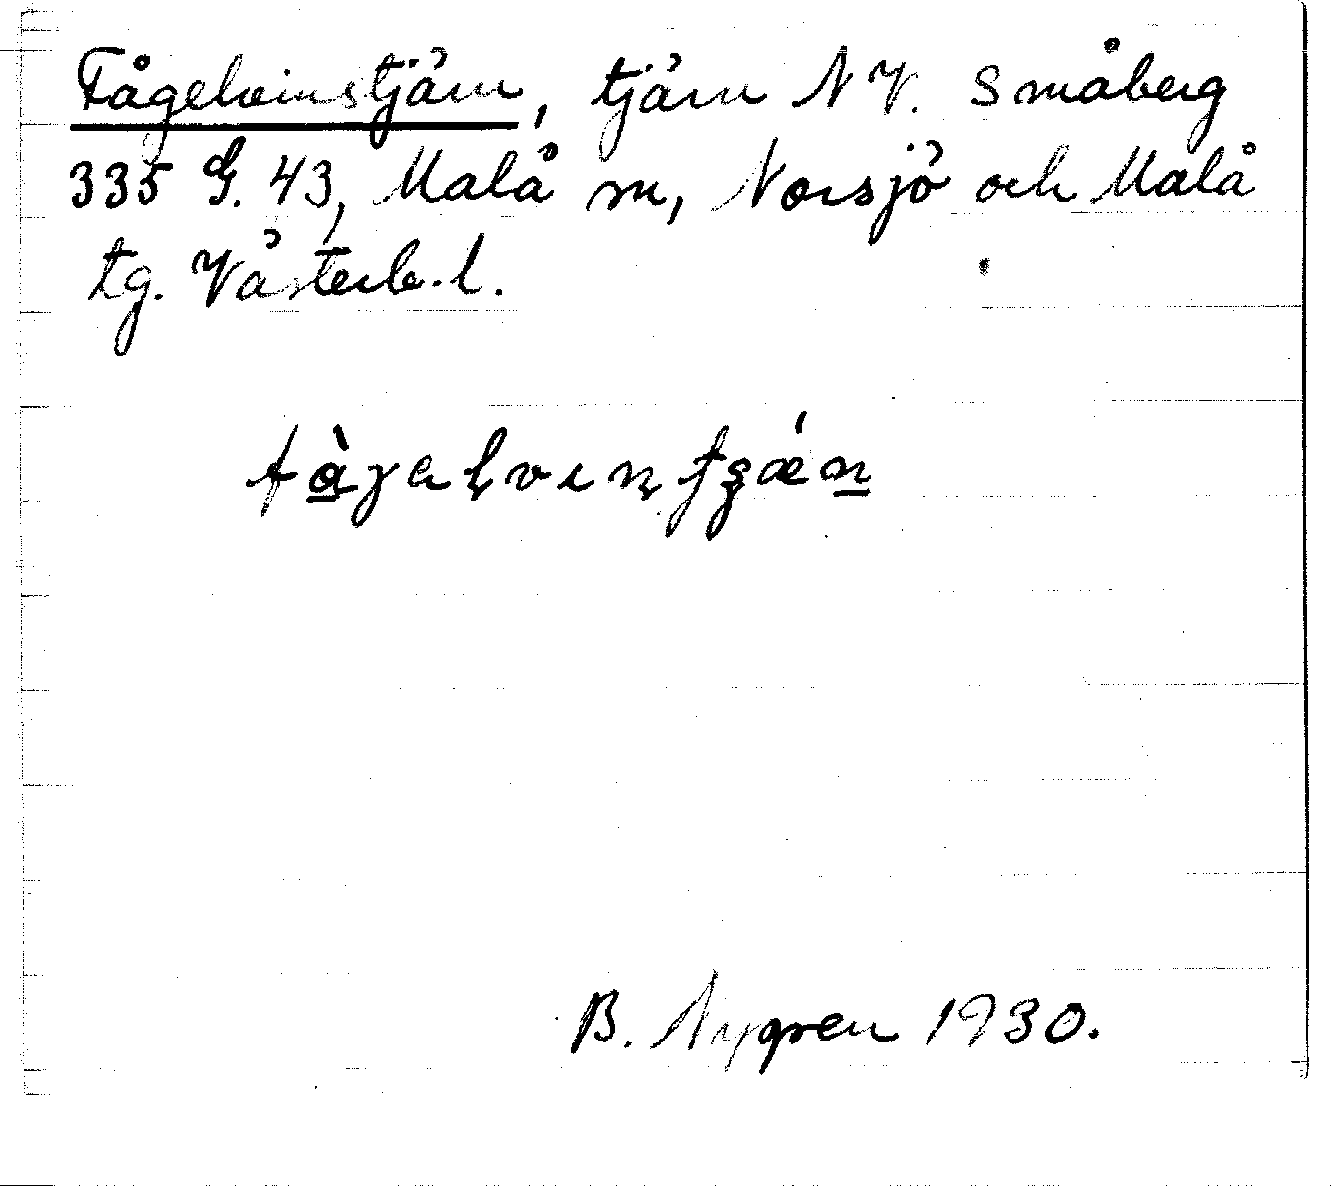 Fågelvinstjärn, tjärn NV. Småberg
335 G. 43, Malå sn, Norsjö och Malå
tg. Västerb. l.
B. Nygren 1930.